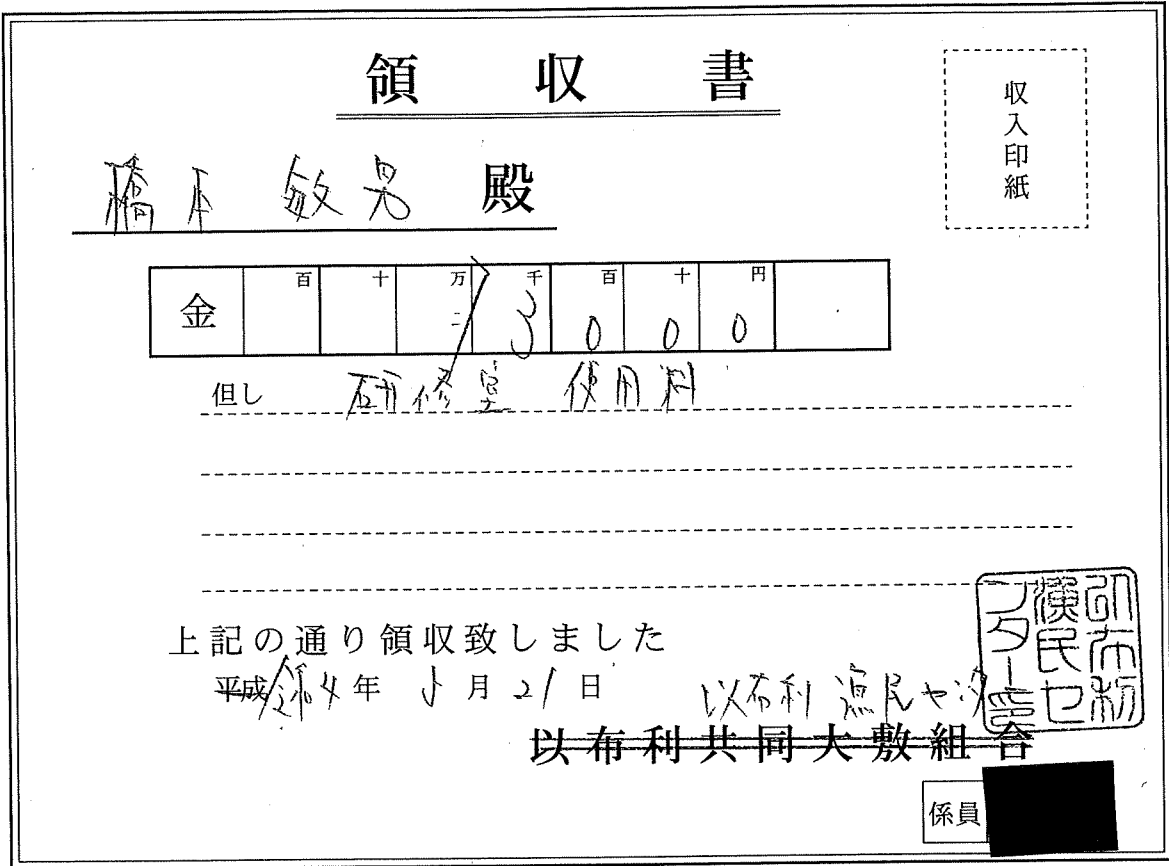 領収書
収入印紙
橋本 敏男 殿
金 百 十 万 千 百 十 円
3 0 0 0
但し 研修室 使用料
上記の通り領収致しました
平成 令和4年 5月21日
以布利 漁民センター
以布利共同大敷組合
以布利漁民センター印
係員